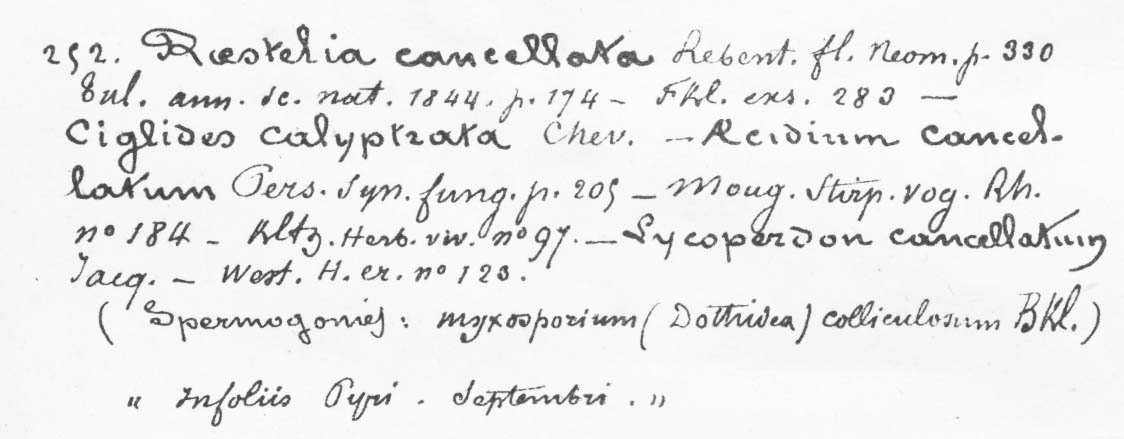 252. Rœstelia cancellata Rebent. fl. Neom. p. 330
Tul. ann. sc. nat. 1844. p. 174 – Fkl. exs. 283 —
Ciglides calyptrata Chev. – Æcidium cancel-
latum Pers. Syn. fung. p. 205 – Moug. Stirp. vog. Rh.
nº 184 – Kltz. Herb. viv. nº 97. – Lycoperdon cancellatum
Jacq. – West. H. cr. nº 123.
( Spermogonies : myxosporium ( Dothidea) colliculosum Bkl. )
" Infoliis Pyri . Septembri . "